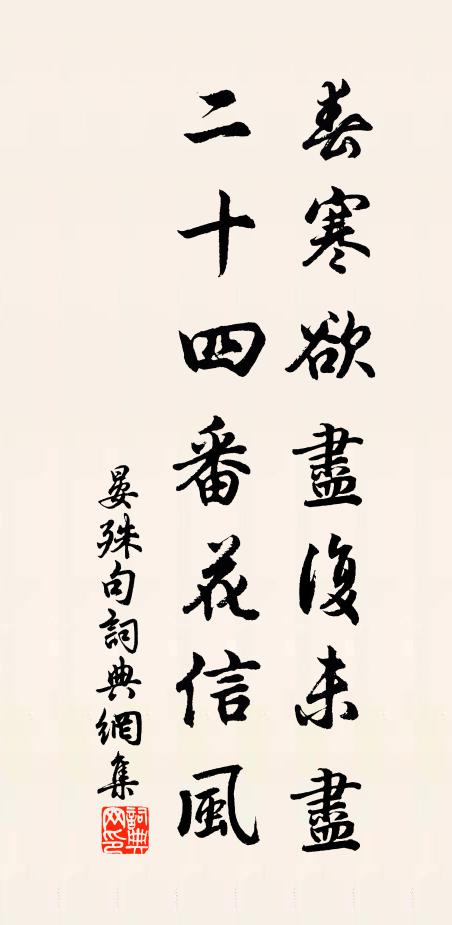 春寒欲盡復未盡
二十四番花信風
晏殊句詞典網集
詞典網印